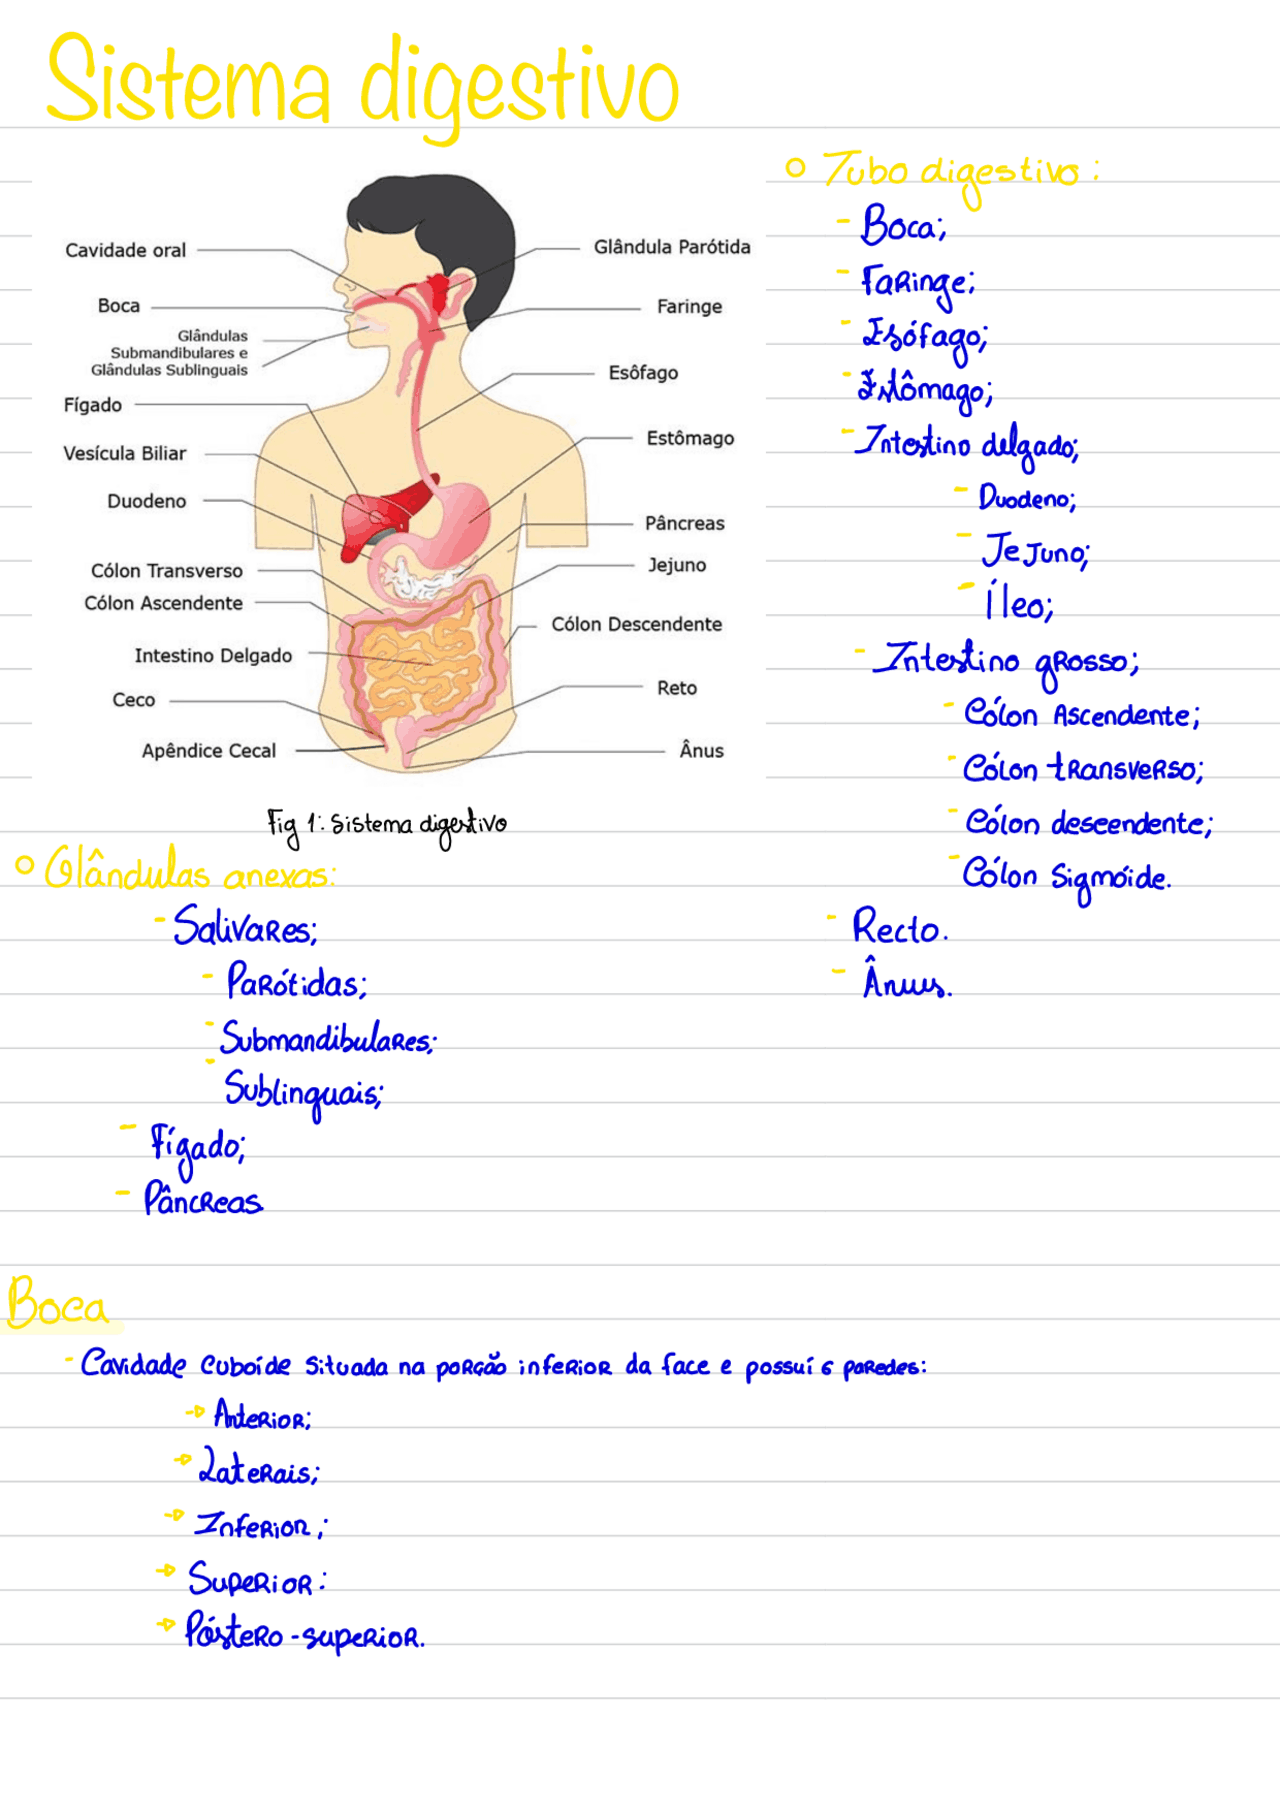 Sistema digestivo
Cavidade oral
Boca
Glândulas
Submandibulares e
Glândulas Sublinguais
Fígado
Vesícula Biliar
Duodeno
Cólon Transverso
Cólon Ascendente
Intestino Delgado
Ceco
Apêndice Cecal
Glândula Parótida
Faringe
Esôfago
Estômago
Pâncreas
Jejuno
Cólon Descendente
Reto
Ânus
Fig 1: Sistema digestivo
Tubo digestivo:
- Boca;
- Faringe;
- Esófago;
- Estômago;
- Intestino delgado;
- Duodeno;
- Jejuno;
- Íleo;
- Intestino grosso;
- Cólon Ascendente;
- Cólon transverso;
- Cólon descendente;
- Cólon Sigmóide.
- Recto.
- Ânus.
Glândulas anexas:
- Salivares;
- Parótidas;
- Submandibulares;
- Sublinguais;
- Fígado;
- Pâncreas.
Boca
- Cavidade Cuboíde Situada na porção inferior da face e possuí 6 paredes:
→ Anterior;
→ Laterais;
→ Inferior;
→ Superior:
→ Póstero-superior.